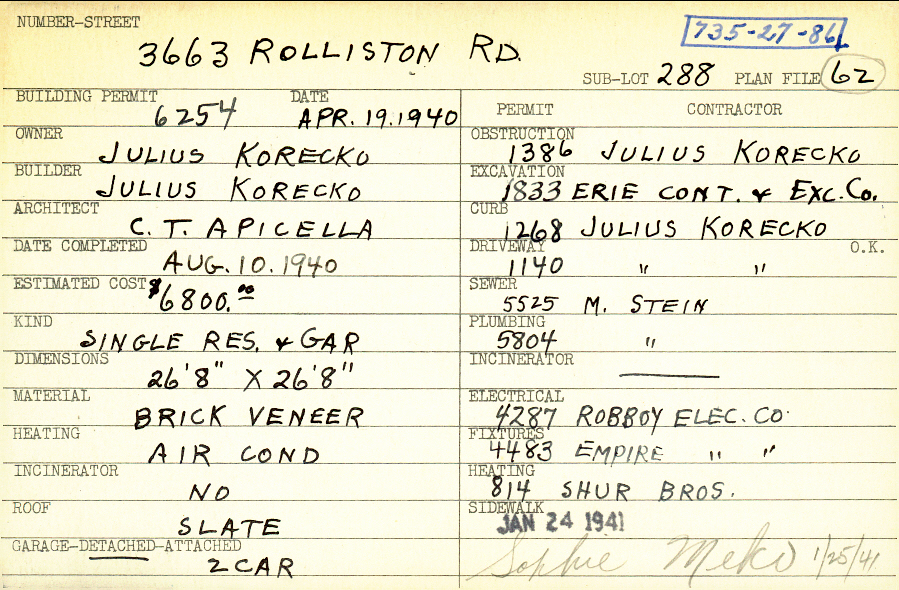 NUMBER-STREET
3663 ROLLISTON RD.
735-27-86
SUB-LOT 288 PLAN FILE 62
BUILDING PERMIT DATE
6254 APR. 19. 1940
OWNER
JULIUS KORECKO
BUILDER
JULIUS KORECKO
ARCHITECT
C. T. APICELLA
DATE COMPLETED
AUG. 10. 1940
ESTIMATED COST $6800.00
KIND
SINGLE RES. & GAR
DIMENSIONS
26'8" X 26'8"
MATERIAL
BRICK VENEER
HEATING
AIR COND
INCINERATOR
NO
ROOF
SLATE
GARAGE-DETACHED-ATTACHED
2 CAR
PERMIT CONTRACTOR
OBSTRUCTION
1386 JULIUS KORECKO
EXCAVATION
1833 ERIE CONT. & EXC. Co.
CURB
1268 JULIUS KORECKO
DRIVEWAY O.K.
1140 " "
SEWER
5525 M. STEIN
PLUMBING
5804 "
INCINERATOR
ELECTRICAL
4287 ROBBOY ELEC. CO.
FIXTURES
4483 EMPIRE " "
HEATING
814 SHUR BROS.
SIDEWALK
JAN 24 1941
Sophie Meko 1/25/41